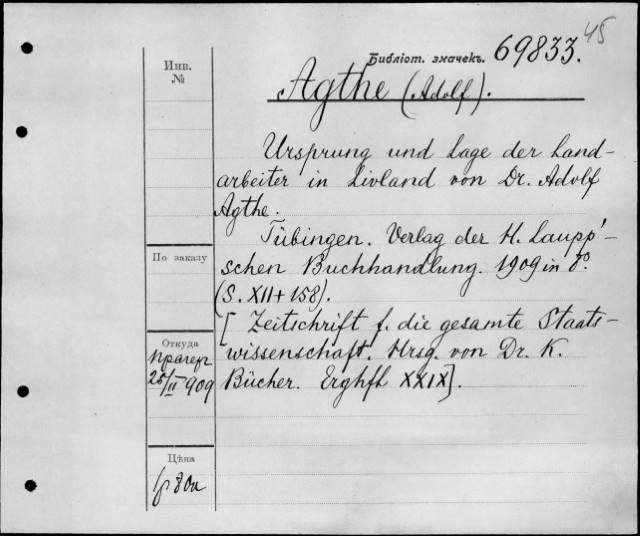 45
Библіот. значекъ. 69833.
Инв.
№
Agthe (Adolf).
Ursprung und Lage der Land-
arbeiter in Livland von Dr. Adolf
Agthe.
Tübingen. Verlag der H. Laupp'-
schen Buchhandlung. 1909 in 8º.
(S. XII + 158).
[Zeitschrift f. die gesamte Staats-
wissenschaft. Hrsg. von Dr. K.
Bücher. Erghft XXIX].
По заказу
Откуда
Прагер
25/II 909
Цѣна
1р 80к